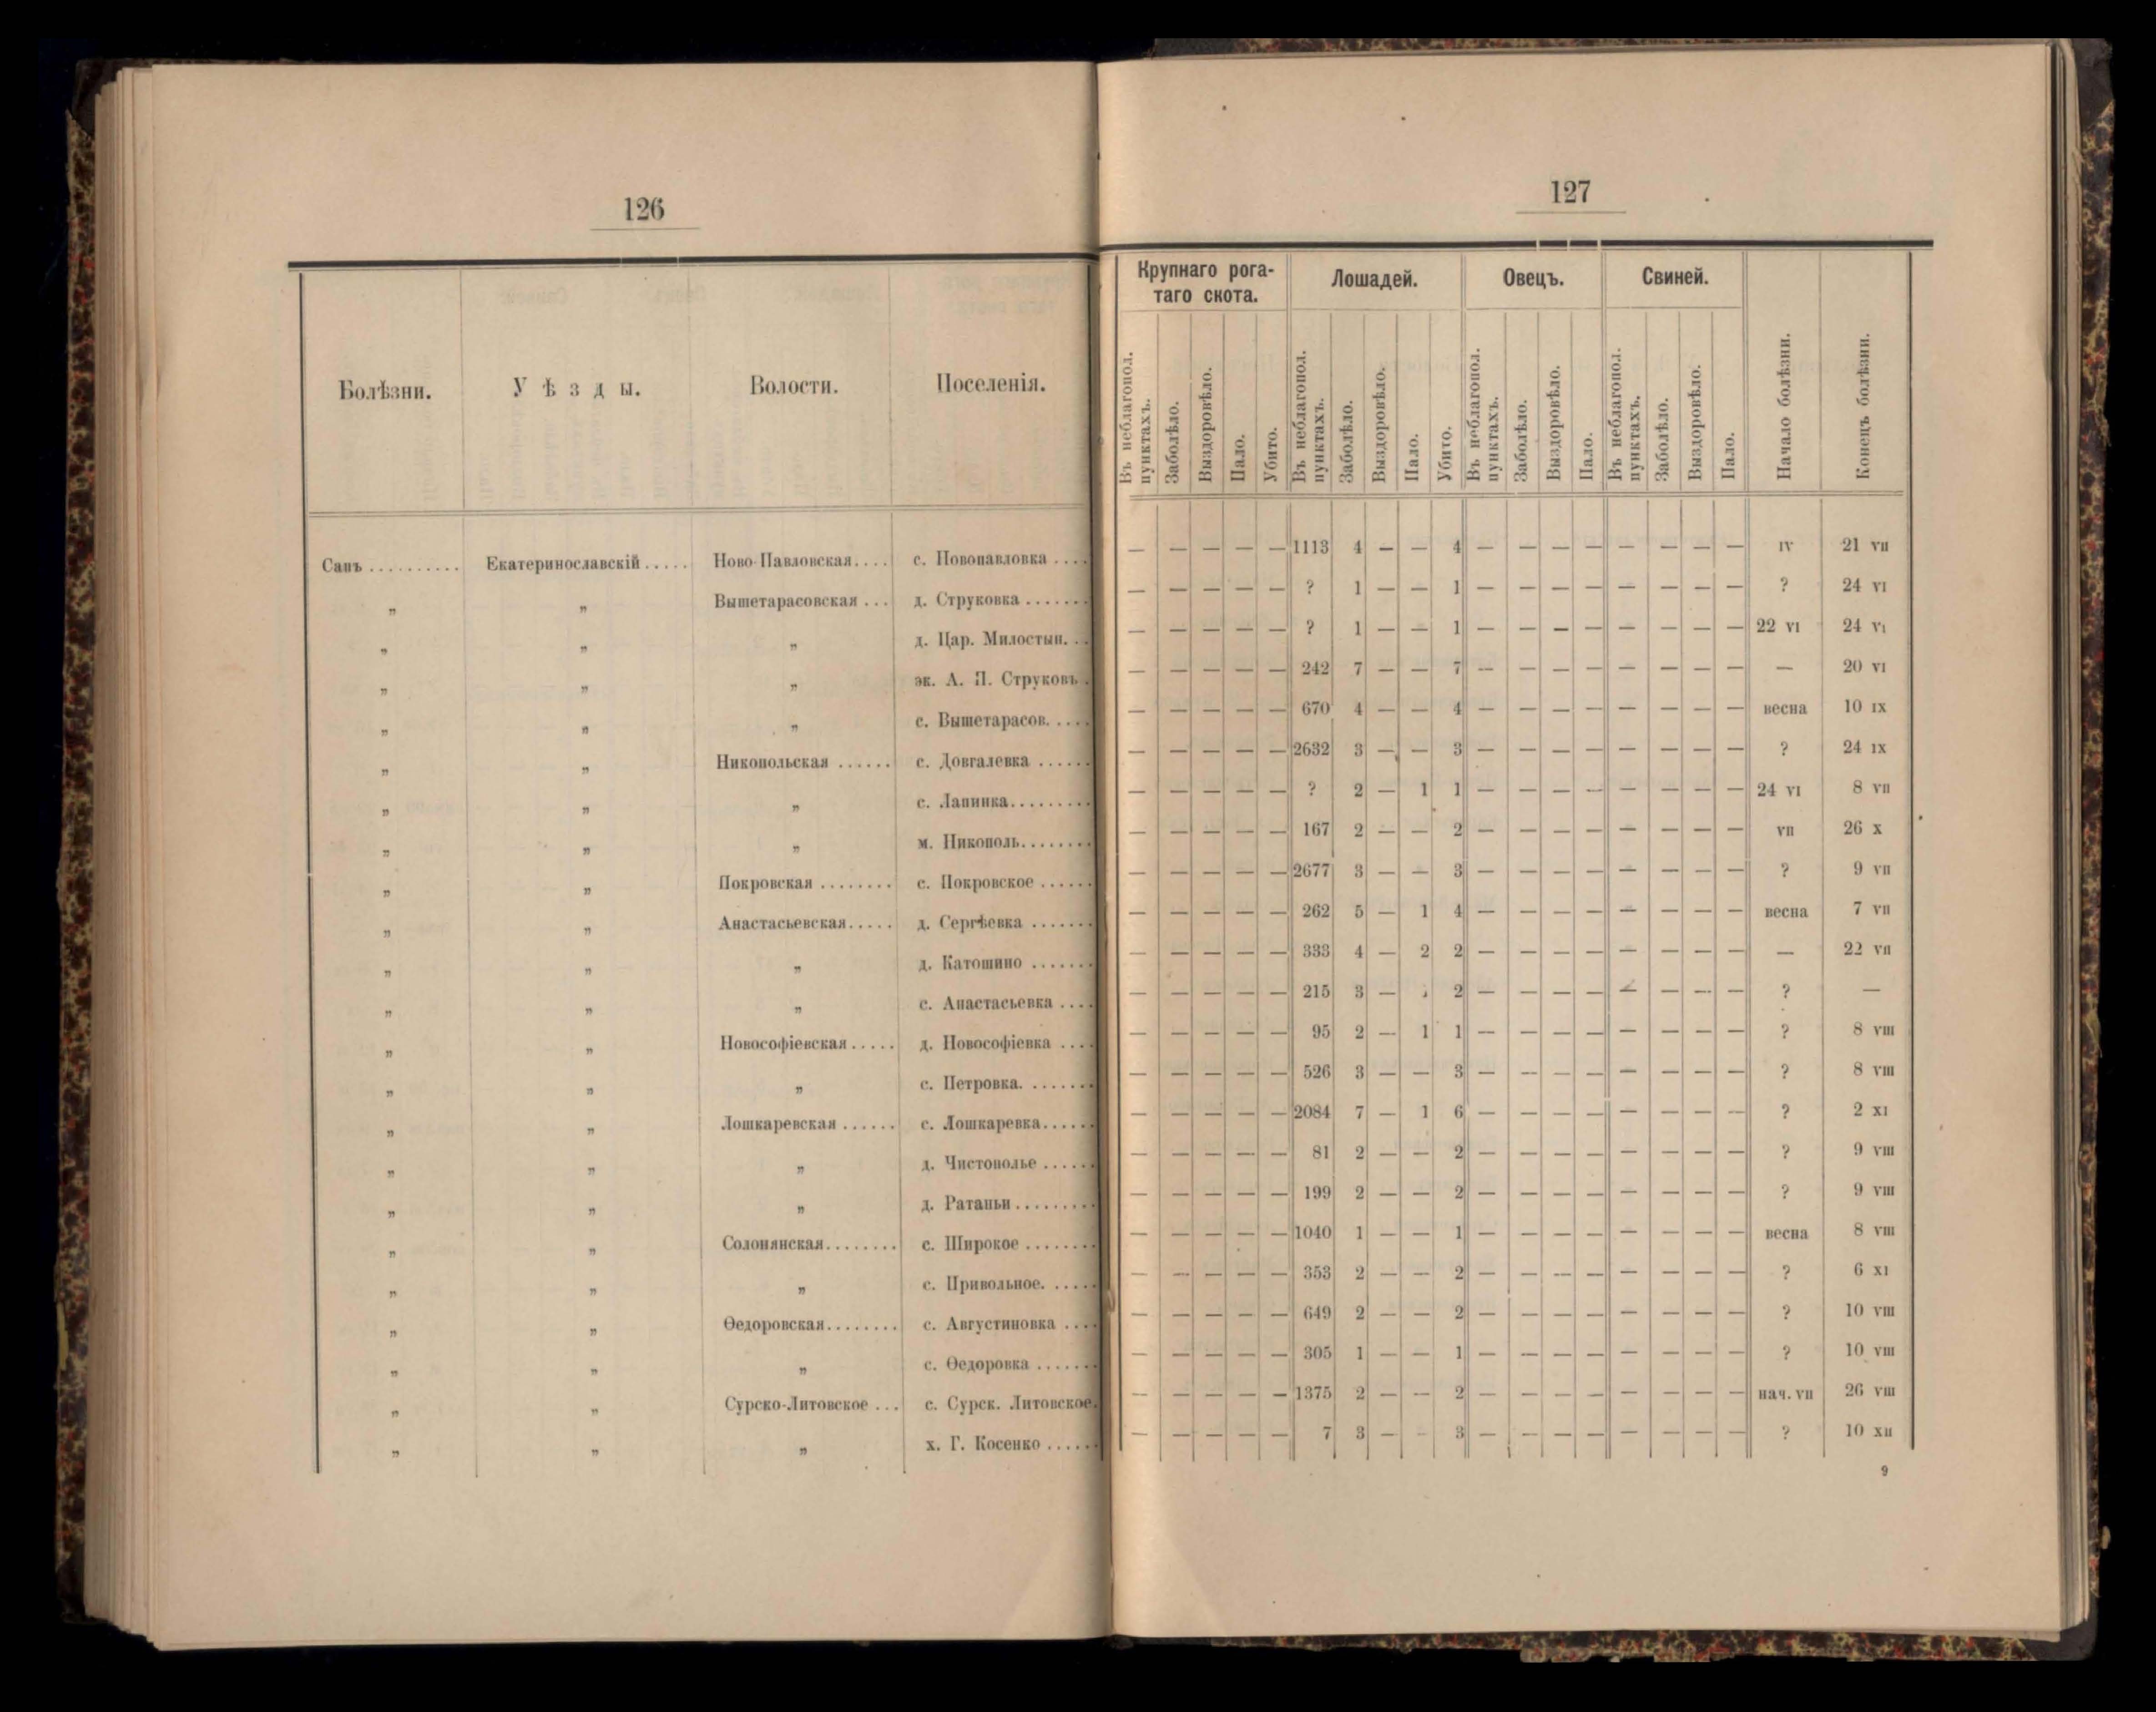 126
Болѣзни. Уѣзды. Волости. Поселенія.
Сапъ .......... Екатеринославскій ..... Ново-Павловская .... с. Новопавловка ....
„ „ Вышетарасовская ... д. Струковка .......
„ „ „ д. Цар. Милостын. ..
„ „ „ эк. А. П. Струковъ .
„ „ „ с. Вышетарасов. ....
„ „ Никопольская ...... с. Довгалевка ......
„ „ „ с. Лапинка.........
„ „ „ м. Никополь........
„ „ Покровская ........ с. Покровское ......
„ „ Анастасьевская..... д. Сергѣевка .......
„ „ „ д. Катошино .......
„ „ „ с. Анастасьевка ....
„ „ Новософіевская ..... д. Новософіевка ....
„ „ „ с. Петровка. .......
„ „ Лошкаревская ...... с. Лошкаревка......
„ „ „ д. Чистополье ......
„ „ „ д. Ратаньи.........
„ „ Солонянская........ с. Широкое ........
„ „ „ с. Привольное. .....
„ „ Ѳедоровская........ с. Августиновка ....
„ „ „ с. Ѳедоровка .......
„ „ Сурско-Литовское ... с. Сурск. Литовское.
„ „ „ х. Г. Косенко ......
127
Крупнаго рога-
таго скота. Лошадей. Овецъ. Свиней.
Въ неблагопол. пунктахъ. Заболѣло. Выздоровѣло. Пало. Убито. Въ неблагопол. пунктахъ. Заболѣло. Выздоровѣло. Пало. Убито. Въ неблагопол. пунктахъ. Заболѣло. Выздоровѣло. Пало. Въ неблагопол. пунктахъ. Заболѣло. Выздоровѣло. Пало. Начало болѣзни. Конецъ болѣзни.
— — — — — 1113 4 — — 4 — — — — — — — — IV 21 VII
— — — — — ? 1 — — 1 — — — — — — — — ? 24 VI
— — — — — ? 1 — — 1 — — — — — — — — 22 VI 24 VI
— — — — — 242 7 — — 7 — — — — — — — — — 20 VI
— — — — — 670 4 — — 4 — — — — — — — — весна 10 IX
— — — — — 2632 3 — — 3 — — — — — — — — ? 24 IX
— — — — — ? 2 — 1 1 — — — — — — — — 24 VI 8 VII
— — — — — 167 2 — — 2 — — — — — — — — VII 26 X
— — — — — 2677 3 — — 3 — — — — — — — — ? 9 VII
— — — — — 262 5 — 1 4 — — — — — — — — весна 7 VII
— — — — — 333 4 — 2 2 — — — — — — — — — 22 VII
— — — — — 215 3 — 2 — — — — — — — — ? —
— — — — — 95 2 — 1 1 — — — — — — — — ? 8 VIII
— — — — — 526 3 — — 3 — — — — — — — — ? 8 VIII
— — — — — 2084 7 — 1 6 — — — — — — — — ? 2 XI
— — — — — 81 2 — — 2 — — — — — — — — ? 9 VIII
— — — — — 199 2 — — 2 — — — — — — — — ? 9 VIII
— — — — — 1040 1 — — 1 — — — — — — — — весна 8 VIII
— — — — — 353 2 — — 2 — — — — — — — — ? 6 XI
— — — — — 649 2 — — 2 — — — — — — — — ? 10 VIII
— — — — — 305 1 — — 1 — — — — — — — — ? 10 VIII
— — — — — 1375 2 — — 2 — — — — — — — — нач. VII 26 VIII
— — — — — 7 3 — — 3 — — — — — — — — ? 10 XII
9